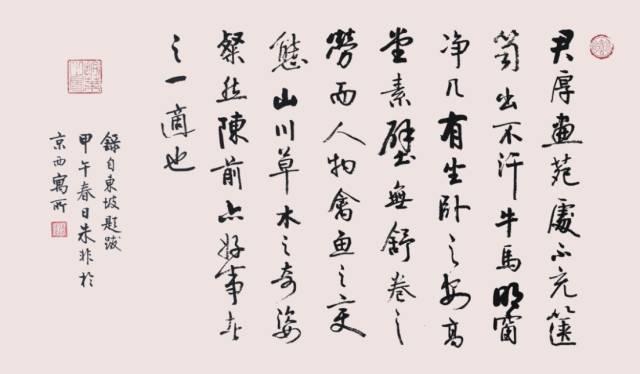 君厚画苑处不充箧
笥出不汗牛馬明窗
净几有坐卧之安高
堂素壁無舒卷之
勞而人物禽魚之变
態山川草木之奇姿
粲然陳前亦好事者
之一適也
錄自東坡題跋
甲午春日朱非於
京西寓所